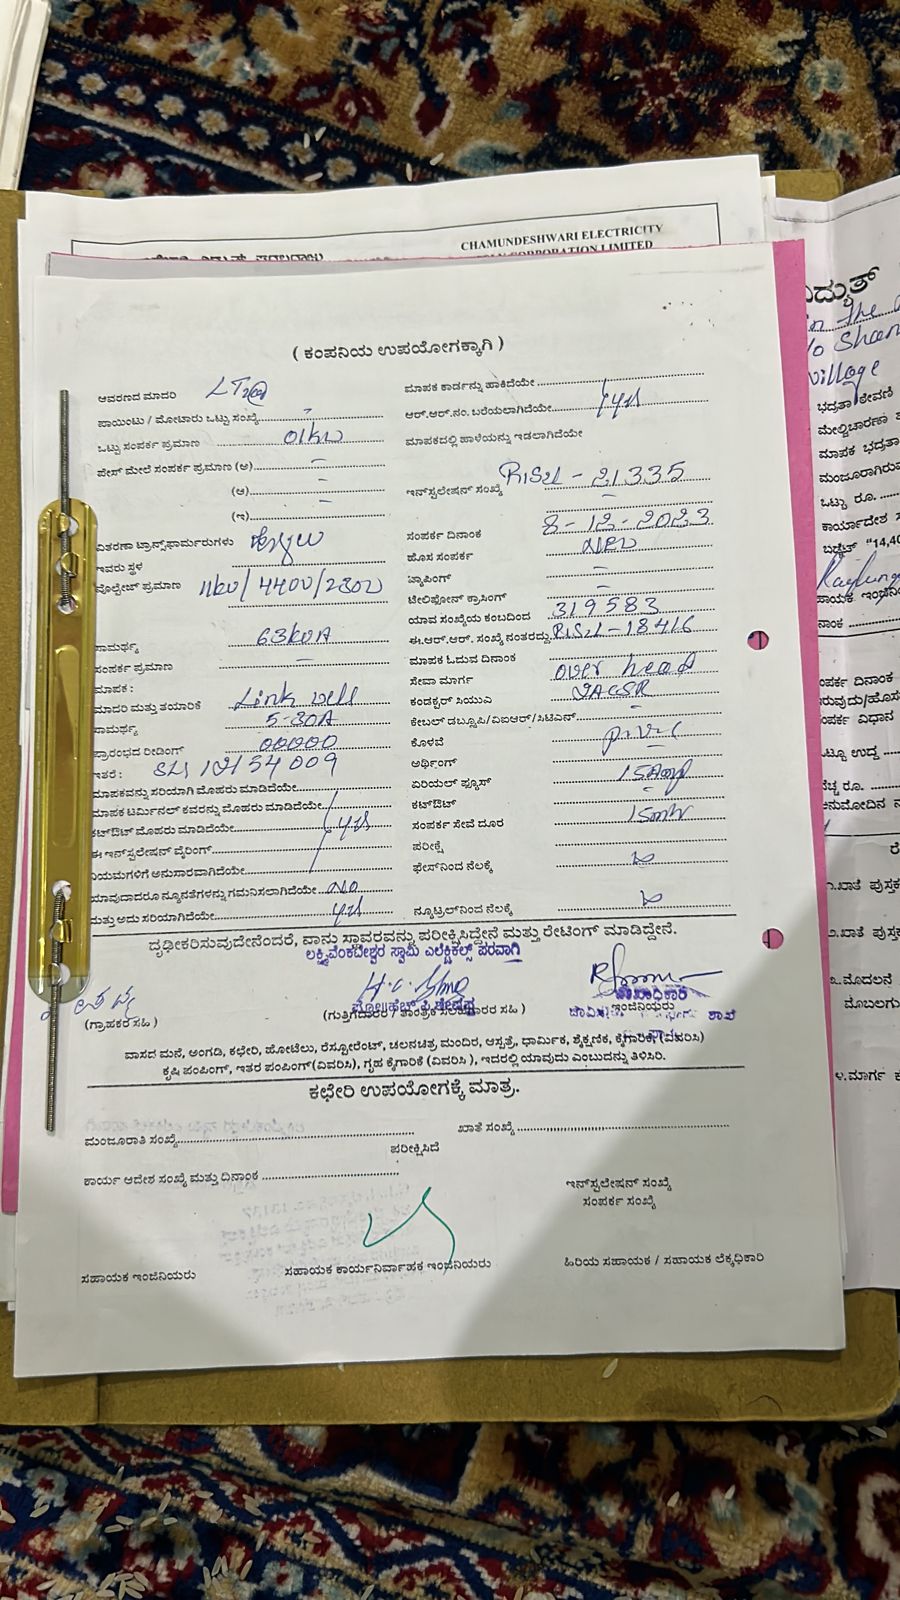 CHAMUNDESHWARI ELECTRICITY
CORPORATION LIMITED
( ಕಂಪನಿಯ ಉಪಯೋಗಕ್ಕಾಗಿ )
ಆವರಣದ ಮಾದರಿ LT2(a)
ಪಾಯಿಂಟು / ಮೋಟಾರು ಒಟ್ಟು ಸಂಖ್ಯೆ -
ಒಟ್ಟು ಸಂಪರ್ಕ ಪ್ರಮಾಣ 01kw
ಪೇಸ್ ಮೇಲೆ ಸಂಪರ್ಕ ಪ್ರಮಾಣ (ಅ) -
(ಆ) -
(ಇ) -
ವಿತರಣಾ ಟ್ರಾನ್ಸ್‌ಫಾರ್ಮರುಗಳು
ಇವರು ಸ್ಥಳ
ವೋಲ್ಟೇಜ್ ಪ್ರಮಾಣ 11kv/440v/230v
ಸಾಮರ್ಥ್ಯ 63kVA
ಸಂಪರ್ಕ ಪ್ರಮಾಣ -
ಮಾಪಕ :
ಮಾದರಿ ಮತ್ತು ತಯಾರಿಕೆ Link well
ಸಾಮರ್ಥ್ಯ 5-30A
ಪ್ರಾರಂಭದ ರೀಡಿಂಗ್ 00000
ಇತರೆ :
ಮಾಪಕವನ್ನು ಸರಿಯಾಗಿ ಮೊಹರು ಮಾಡಿದೆಯೇ
ಮಾಪಕ ಟರ್ಮಿನಲ್ ಕವರನ್ನು ಮೊಹರು ಮಾಡಿದೆಯೇ
ಕಟ್‌ಔಟ್ ಮೊಹರು ಮಾಡಿದೆಯೇ yes
ಈ ಇನ್‌ಸ್ಟಲೇಷನ್ ವೈರಿಂಗ್
ನಿಯಮಗಳಿಗೆ ಅನುಸಾರವಾಗಿದೆಯೇ
ಯಾವುದಾದರೂ ನ್ಯೂನತೆಗಳನ್ನು ಗಮನಿಸಲಾಗಿದೆಯೇ No
ಮತ್ತು ಅದು ಸರಿಯಾಗಿದೆಯೇ yes
ಮಾಪಕ ಕಾರ್ಡನ್ನು ಹಾಕಿದೆಯೇ
ಆರ್.ಆರ್.ನಂ. ಬರೆಯಲಾಗಿದೆಯೇ yes
ಮಾಪಕದಲ್ಲಿ ಹಾಳೆಯನ್ನು ಇಡಲಾಗಿದೆಯೇ
ಇನ್‌ಸ್ಟಲೇಷನ್ ಸಂಖ್ಯೆ 21335
-
ಸಂಪರ್ಕ ದಿನಾಂಕ 8-12-2023
ಹೊಸ ಸಂಪರ್ಕ NEW
ಟ್ಯಾಪಿಂಗ್ -
ಟೇಲಿಫೋನ್ ಕ್ರಾಸಿಂಗ್ -
ಯಾವ ಸಂಖ್ಯೆಯ ಕಂಬದಿಂದ 319583
ಈ.ಆರ್.ಆರ್. ಸಂಖ್ಯೆ ನಂತರದ್ದು 18416
ಮಾಪಕ ಓದುವ ದಿನಾಂಕ
ಸೇವಾ ಮಾರ್ಗ over head
ಕಂಡಕ್ಟರ್ ಸಿಯುಎ
ಕೇಬಲ್ ಡಬ್ಲೂಪಿ/ವಿಐಆರ್/ಸಿಟಿಎಸ್ -
ಕೊಳವೆ PVC
ಅರ್ಥಿಂಗ್ -
ಏರಿಯಲ್ ಫ್ಯೂಸ್ 15Amp
ಕಟ್‌ಔಟ್ -
ಸಂಪರ್ಕ ಸೇವೆ ದೂರ 15mtr
ಪರೀಕ್ಷೆ
ಫೇಸ್‌ನಿಂದ ನೆಲಕ್ಕೆ
ನ್ಯೂಟ್ರಲ್‌ನಿಂದ ನೆಲಕ್ಕೆ
ದೃಢೀಕರಿಸುವುದೇನೆಂದರೆ, ವಾನು ಸ್ಥಾವರವನ್ನು ಪರೀಕ್ಷಿಸಿದ್ದೇನೆ ಮತ್ತು ರೇಟಿಂಗ್ ಮಾಡಿದ್ದೇನೆ.
ಲಕ್ಷ್ಮಿವೆಂಕಟೇಶ್ವರ ಸ್ವಾಮಿ ಎಲೆಕ್ಟ್ರಿಕಲ್ಸ್ ಪರವಾಗಿ
(ಗ್ರಾಹಕರ ಸಹಿ )
ಇಂಜಿನಿಯರು
ವಾಸದ ಮನೆ, ಅಂಗಡಿ, ಕಛೇರಿ, ಹೋಟೆಲು, ರೆಸ್ಟೋರೆಂಟ್, ಚಲನಚಿತ್ರ ಮಂದಿರ, ಆಸ್ಪತ್ರೆ, ಧಾರ್ಮಿಕ, ಶೈಕ್ಷಣಿಕ, ಕೈಗಾರಿಕೆ, (ವಿವರಿಸಿ)
ಕೃಷಿ ಪಂಪಿಂಗ್, ಇತರ ಪಂಪಿಂಗ್ (ವಿವರಿಸಿ), ಗೃಹ ಕೈಗಾರಿಕೆ (ವಿವರಿಸಿ ), ಇದರಲ್ಲಿ ಯಾವುದು ಎಂಬುದನ್ನು ತಿಳಿಸಿರಿ.
ಕಛೇರಿ ಉಪಯೋಗಕ್ಕೆ ಮಾತ್ರ.
ಮಂಜೂರಾತಿ ಸಂಖ್ಯೆ
ಖಾತೆ ಸಂಖ್ಯೆ
ಪರೀಕ್ಷಿಸಿದೆ
ಕಾರ್ಯ ಆದೇಶ ಸಂಖ್ಯೆ ಮತ್ತು ದಿನಾಂಕ
ಇನ್‌ಸ್ಟಲೇಷನ್ ಸಂಖ್ಯೆ
ಸಂಪರ್ಕ ಸಂಖ್ಯೆ
ಸಹಾಯಕ ಇಂಜಿನಿಯರು
ಸಹಾಯಕ ಕಾರ್ಯನಿರ್ವಾಹಕ ಇಂಜಿನಿಯರು
ಹಿರಿಯ ಸಹಾಯಕ / ಸಹಾಯಕ ಲೆಕ್ಕಧಿಕಾರಿ
village
ಒಟ್ಟು ರೂ.